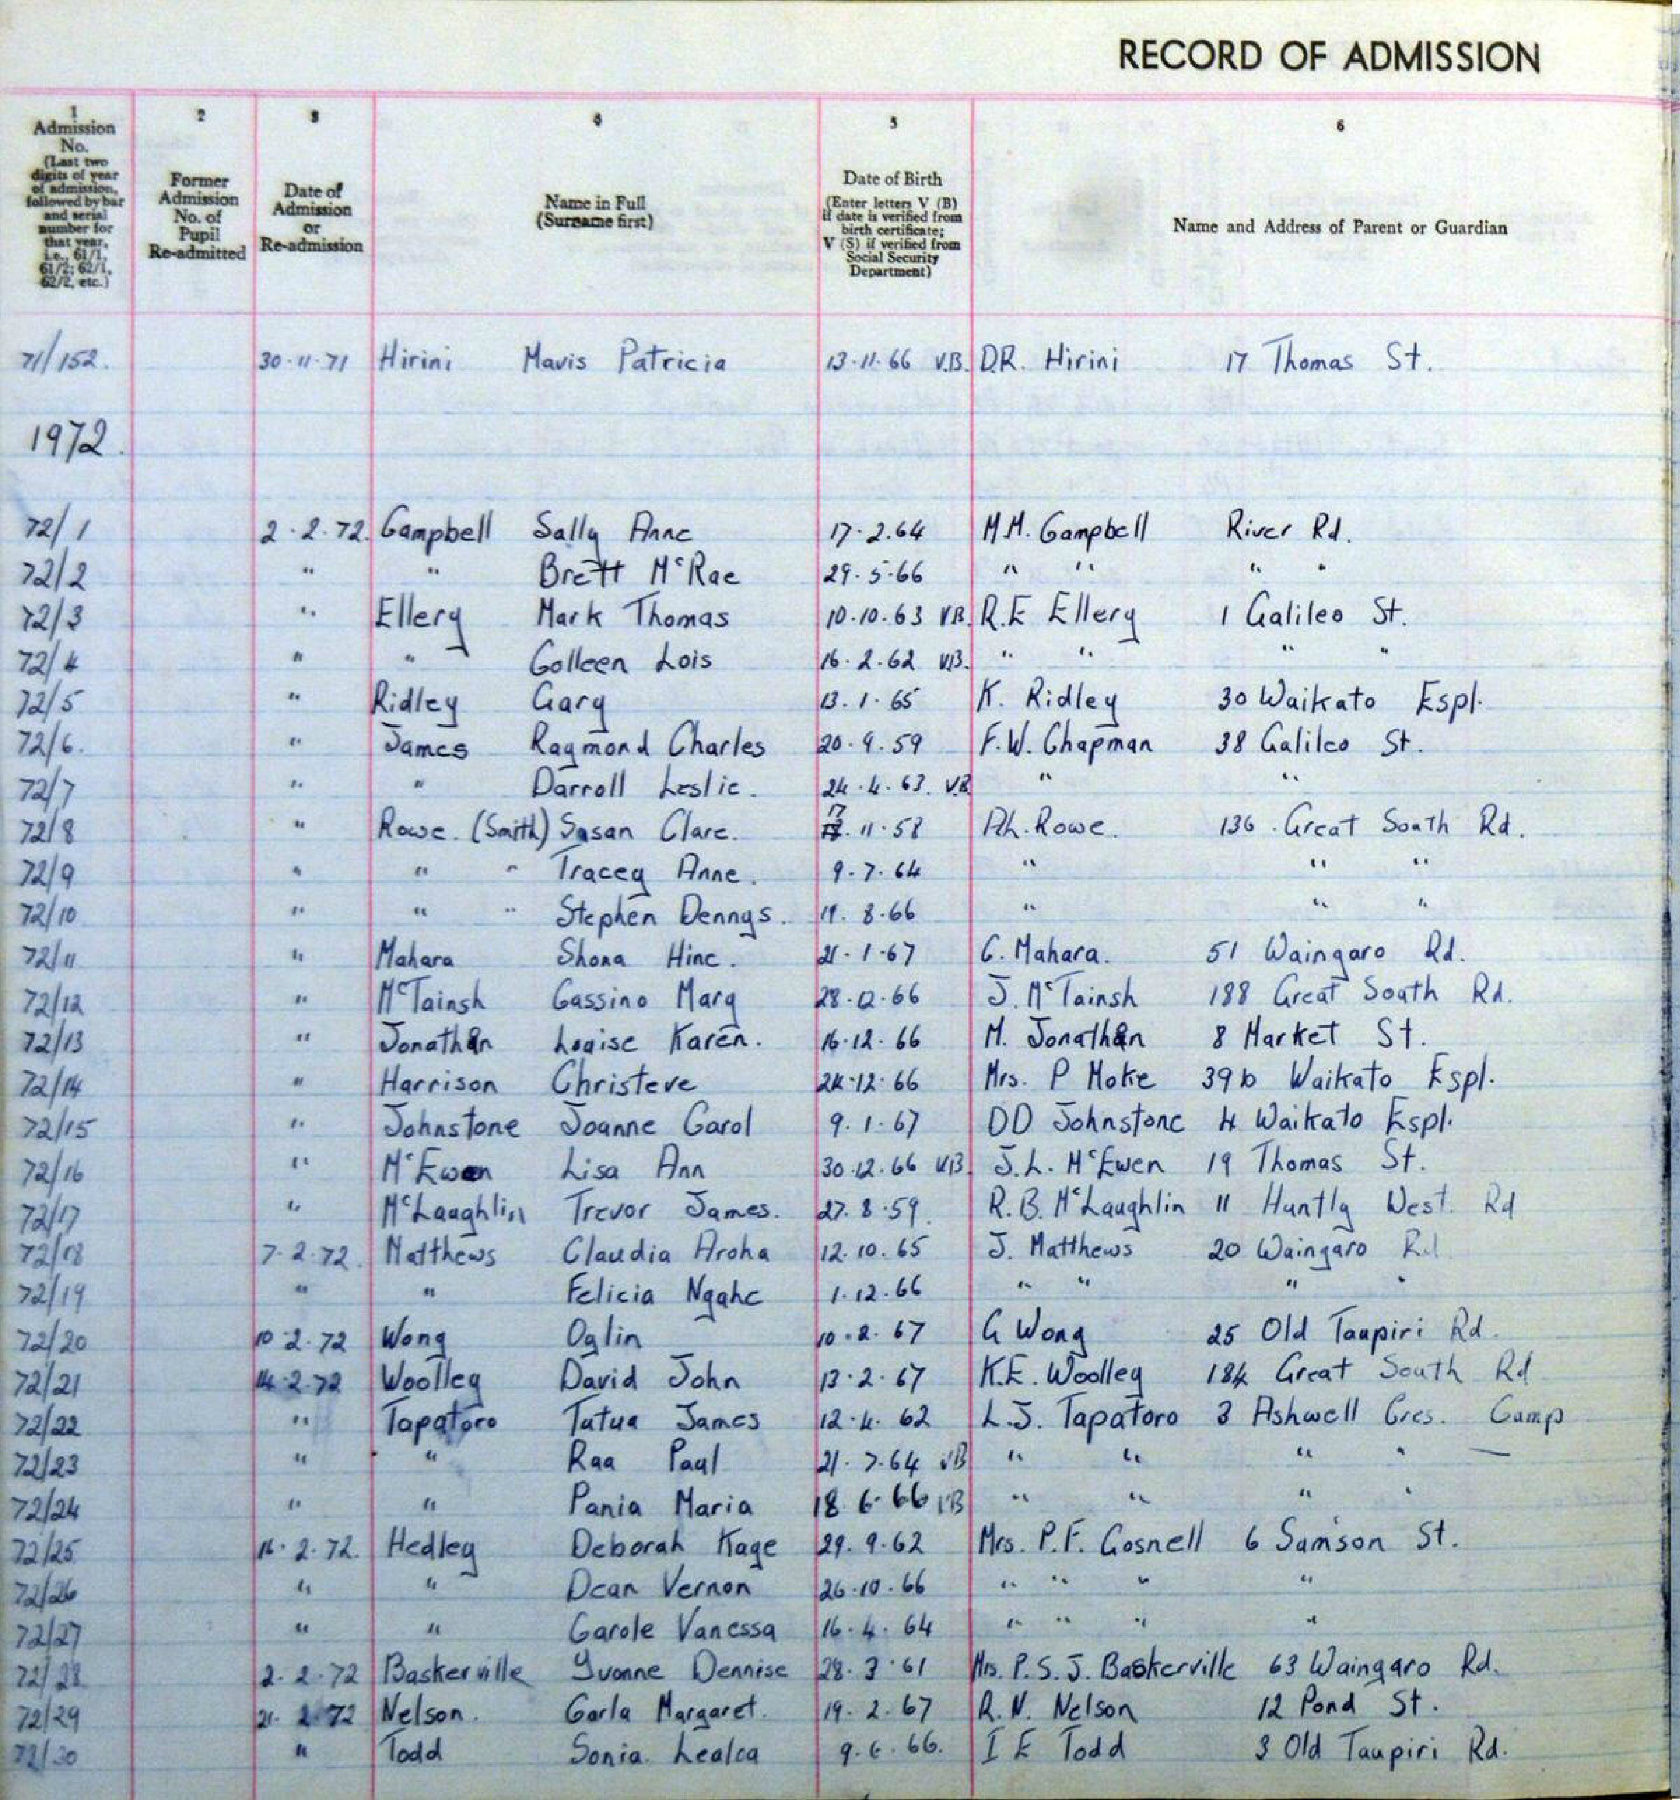 RECORD OF ADMISSION
1 2 3 4 5 6
Admission No. (Last two digits of year of admission, followed by bar and serial number for that year, i.e., 61/1, 61/2; 62/1, 62/2, etc.)
Former Admission No. of Pupil Re-admitted
Date of Admission or Re-admission
Name in Full (Surname first)
Date of Birth (Enter letters V (B) if date is verified from birth certificate; V (S) if verified from Social Security Department)
Name and Address of Parent or Guardian
71/152. 30·11·71 Hirini Mavis Patricia 13·11·66 V.B. D.R. Hirini 17 Thomas St.
1972.
72/1 2·2·72. Campbell Sally Anne 17·2·64 M.M. Campbell River Rd.
72/2 " " Brett McRae 29·5·66 " " " "
72/3 " Ellery Mark Thomas 10·10·63 V.B. R.E Ellery 1 Galileo St.
72/4 " " Colleen Lois 16·2·62 V.B. " " " "
72/5 " Ridley Gary 13·1·65 K. Ridley 30 Waikato Espl.
72/6. " James Raymond Charles 20·9·59 F.W. Chapman 38 Galileo St.
72/7 " " Darroll Leslie. 24·4·63. V.B. " "
72/8 " Rowe. (Smith) Susan Clare. 17·11·58 P.L. Rowe. 136. Great South Rd.
72/9 " " " Tracey Anne. 9·7·64 " " "
72/10 " " " Stephen Dennys. 19·8·66 " " "
72/11 " Mahara Shona Hine. 21·1·67 G. Mahara. 51 Waingaro Rd.
72/12 " McTainsh Cassino Mary 28·12·66 J. McTainsh 188 Great South Rd.
72/13 " Jonathan Louise Karen. 16·12·66 M. Jonathan 8 Market St.
72/14 " Harrison Christeve 24·12·66 Mrs. P Moke 39b Waikato Espl.
72/15 " Johnstone Joanne Carol 9·1·67 DD Johnstone 4 Waikato Espl.
72/16 " McEwen Lisa Ann 30·12·66 V.B. J.L. McEwen 19 Thomas St.
72/17 " McLaughlin Trevor James. 27·8·59. R.B. McLaughlin 11 Huntly West Rd
72/18 7·2·72. Matthews Claudia Aroha 12·10·65 J. Matthews 20 Waingaro Rd
72/19 " " Felicia Ngahe 1·12·66 " " " "
72/20 10·2·72 Wong Oylin 10·2·67 G Wong 25 Old Taupiri Rd.
72/21 14·2·72 Woolley David John 13·2·67 K.E. Woolley 184 Great South Rd
72/22 " Tapatoro Tutua James 12·4·62 L.J. Tapatoro 3 Ashwell Cres. Camp
72/23 " " Rua Paul 21·7·64 VB " " " "
72/24 " " Pania Maria 18·6·66 VB " " " "
72/25 16·2·72. Hedley Deborah Kaye 29·9·62 Mrs. P.F. Gosnell 6 Samson St.
72/26 " " Dean Vernon 26·10·66 " " " "
72/27 " " Carole Vanessa 16·4·64 " " " "
72/28 2·2·72 Baskerville Yvonne Dennise 28·3·61 Mrs. P.S.J. Baskerville 63 Waingaro Rd.
72/29 21·2·72 Nelson. Carla Margaret. 19·2·67 R.N. Nelson 12 Pond St.
72/30 " Todd Sonia Lealea 9·6·66. I E Todd 3 Old Taupiri Rd.